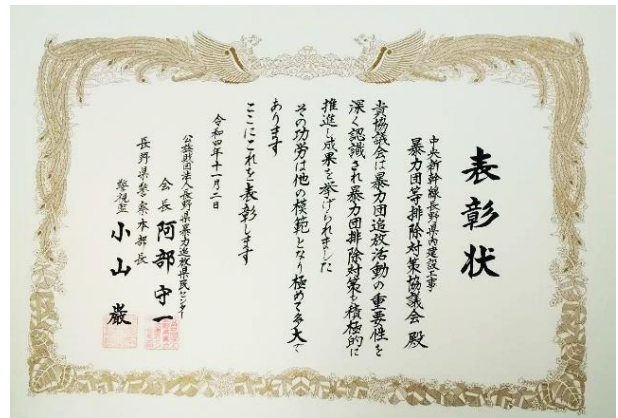 表彰状
中央新幹線長野県内建設工事
暴力団等排除対策協議会 殿
貴協議会は暴力団追放活動の重要性を
深く認識され暴力団排除対策を積極的に
推進し成果を挙げられました
その功労は他の模範となり極めて多大で
あります
ここにこれを表彰します
令和四年十一月二日
公益財団法人長野県暴力追放県民センター
会長 阿部守一
長野県警察本部長
警視監 小山 巌